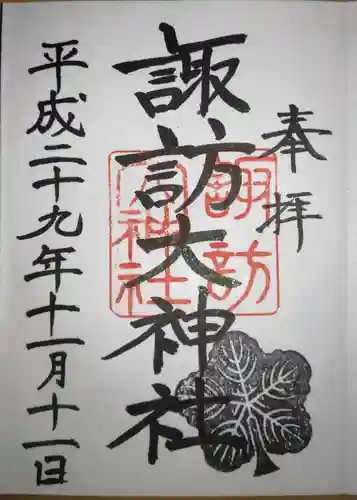 奉拝
諏訪大神社
平成二十九年十一月十一日
諏訪
大神社